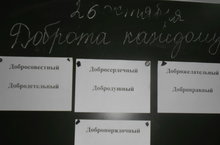 26 октября
Доброта каждому
Добросовестный
Добросердечный
Доброжелательный
Добродетельный
Добродушный
Добронравный
Добропорядочный